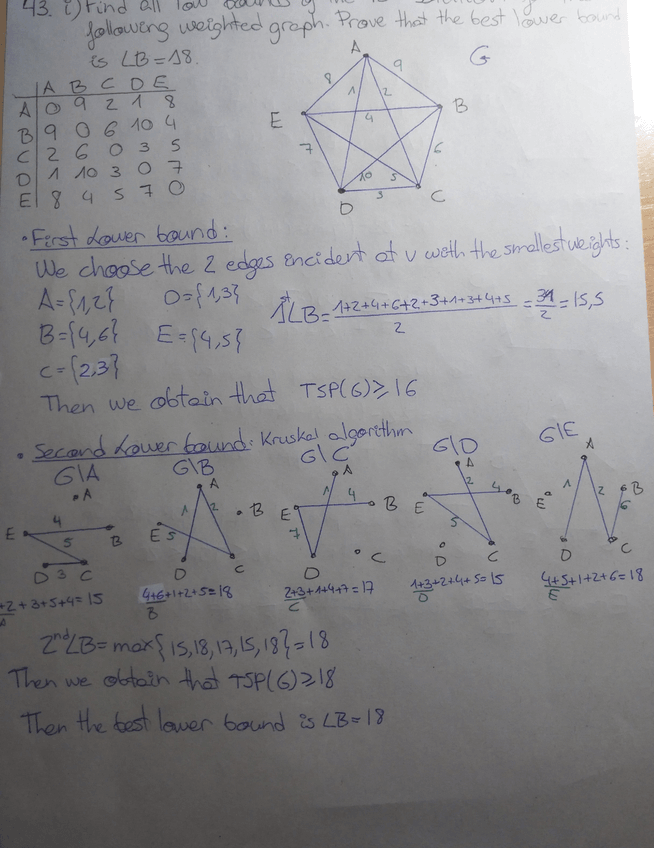 43. i) Find all low bounds of the
following weighted graph. Prove that the best lower bound
is LB=18.
G
A B C D E
A 0 9 2 1 8
B 9 0 6 10 4
C 2 6 0 3 5
D 1 10 3 0 7
E 8 4 5 7 0
A
8 9
1 2
E B
4
7 6
10 5
D 3 C
• First Lower bound:
We choose the 2 edges incident at v with the smallest weights:
A={1,2} D={1,3}
B={4,6} E={4,5}
C={2,3}
1st LB= 1+2+4+6+2+3+1+3+4+5 / 2 = 31/2 = 15,5
Then we obtain that TSP(G)≥16
• Second Lower bound: Kruskal algorithm
G\A G\B G\C G\D G\E
A
E 4 B
5
D 3 C
A
1 2
B
E 5
D C
A
1 4
E B
7
D C
A
2 4
E B
5
D C
A
E 1 2 B
6
D C
+2+3+5+4=15
A
4+6+1+2+5=18
B
2+3+1+4+7=17
C
1+3+2+4+5=15
D
4+5+1+2+6=18
E
2nd LB= max{15,18,17,15,18}=18
Then we obtain that TSP(G)≥18
Then the best lower bound is LB=18